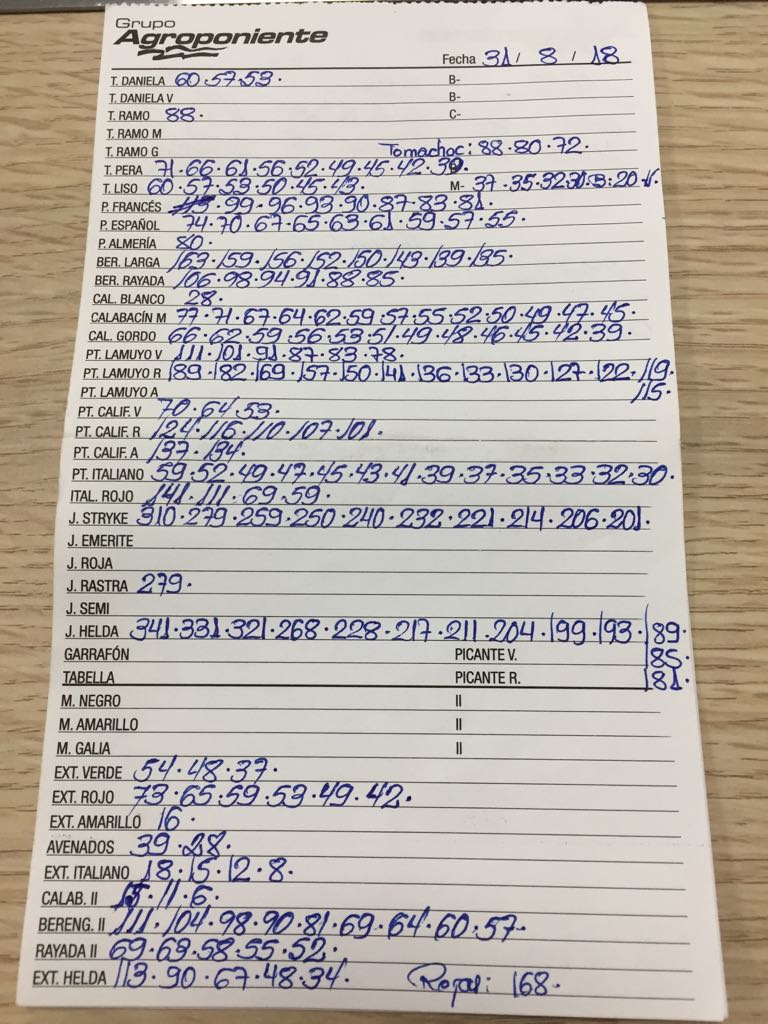 Grupo
Agroponiente
Fecha 31 / 8 / 18
T. DANIELA 60.57.53. B-
T. DANIELA V B-
T. RAMO 88. C-
T. RAMO M
T. RAMO G Tomachoc: 88.80.72.
T. PERA 71.66.61.56.52.49.45.42.39.
T. LISO 60.57.53.50.45.43. M- 37.35.32
P. FRANCÉS 99.96.93.90.87.83.81.
P. ESPAÑOL 74.70.67.65.63.61.59.57.55.
P. ALMERÍA 80.
BER. LARGA 167.159.156.152.150.143.139.135.
BER. RAYADA 106.98.94.91.88.85.
CAL. BLANCO 28.
CALABACÍN M 77.71.67.64.62.59.57.55.52.50.49.47.45.
CAL. GORDO 66.62.59.56.53.51.49.48.46.45.42.39.
PT. LAMUYO V 111.101.91.87.83.78.
PT. LAMUYO R 189.182.169.157.150.141.136.133.130.127.122.119.
PT. LAMUYO A 115.
PT. CALIF. V 70.64.53.
PT. CALIF. R 124.116.110.107.101.
PT. CALIF. A 137.134.
PT. ITALIANO 59.52.49.47.45.43.41.39.37.35.33.32.30.
ITAL. ROJO 141.111.69.59.
J. STRYKE 310.279.259.250.240.232.221.214.206.201.
J. EMERITE
J. ROJA
J. RASTRA 279.
J. SEMI
J. HELDA 341.331.321.268.228.217.211.204.199.193.189.
GARRAFÓN PICANTE V. 185.
TABELLA PICANTE R. 181.
M. NEGRO II
M. AMARILLO II
M. GALIA II
EXT. VERDE 54.48.37.
EXT. ROJO 73.65.59.53.49.42.
EXT. AMARILLO 16.
AVENADOS 39.28.
EXT. ITALIANO 18.15.12.8.
CALAB. II 15.11.6.
BERENG. II 111.104.98.90.81.69.64.60.57.
RAYADA II 69.63.58.55.52.
EXT. HELDA 113.90.67.48.34. Rojas: 168.